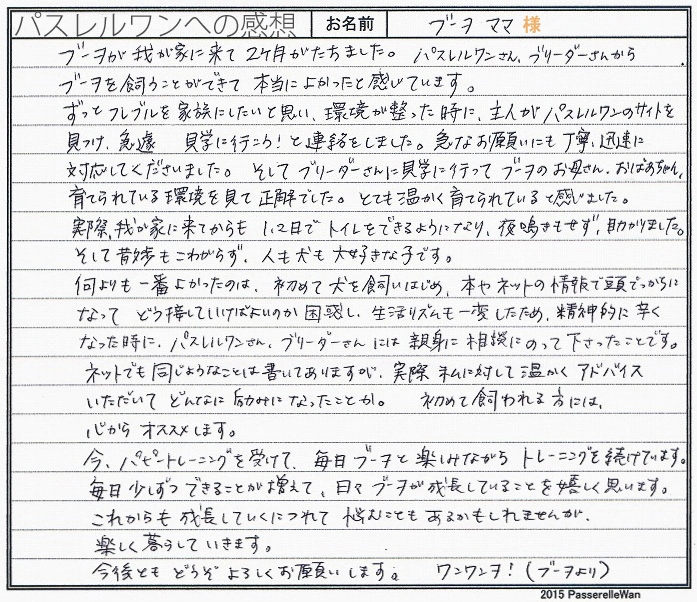 パスレルワンへの感想 お名前 ブーヲ ママ 様
ブーヲが我が家に来て2ヶ月がたちました。パスレルワンさん、ブリーダーさんから
ブーヲを飼うことができて本当によかったと感じています。
ずっとフレブルを家族にしたいと思い、環境が整った時に、主人がパスレルワンのサイトを
見つけ、急遽 見学に行こう!と連絡をしました。急なお願いにも丁寧、迅速に
対応してくださいました。そしてブリーダーさんに見学に行ってブーヲのお母さん、おばあちゃん、
育てられている環境を見て正解でした。とても温かく育てられていると感じました。
実際、我が家に来てからも1、2日でトイレをできるようになり、夜鳴きもせず、助かりました。
そして散歩もこわがらず、人も犬も大好きな子です。
何よりも一番よかったのは、初めて犬を飼いはじめ、本やネットの情報で頭でっかちに
なって どう接していけばよいのか困惑し、生活リズムも一変したため、精神的に辛く
なった時に、パスレルワンさん、ブリーダーさんには親身に相談にのって下さったことです。
ネットでも同じようなことは書いてありますが、実際私に対して温かくアドバイス
いただいてどんなに励みになったことか。 初めて飼われる方には、
心からオススメします。
今、パピートレーニングを受けて、毎日ブーヲと楽しみながらトレーニングを続けています。
毎日少しずつできることが増えて、日々ブーヲが成長していることを嬉しく思います。
これからも成長していくにつれて悩むこともあるかもしれませんが、
楽しく暮らしていきます。
今後ともどうぞよろしくお願いします。 ワンワンヲ!(ブーヲより)
2015 PasserelleWan